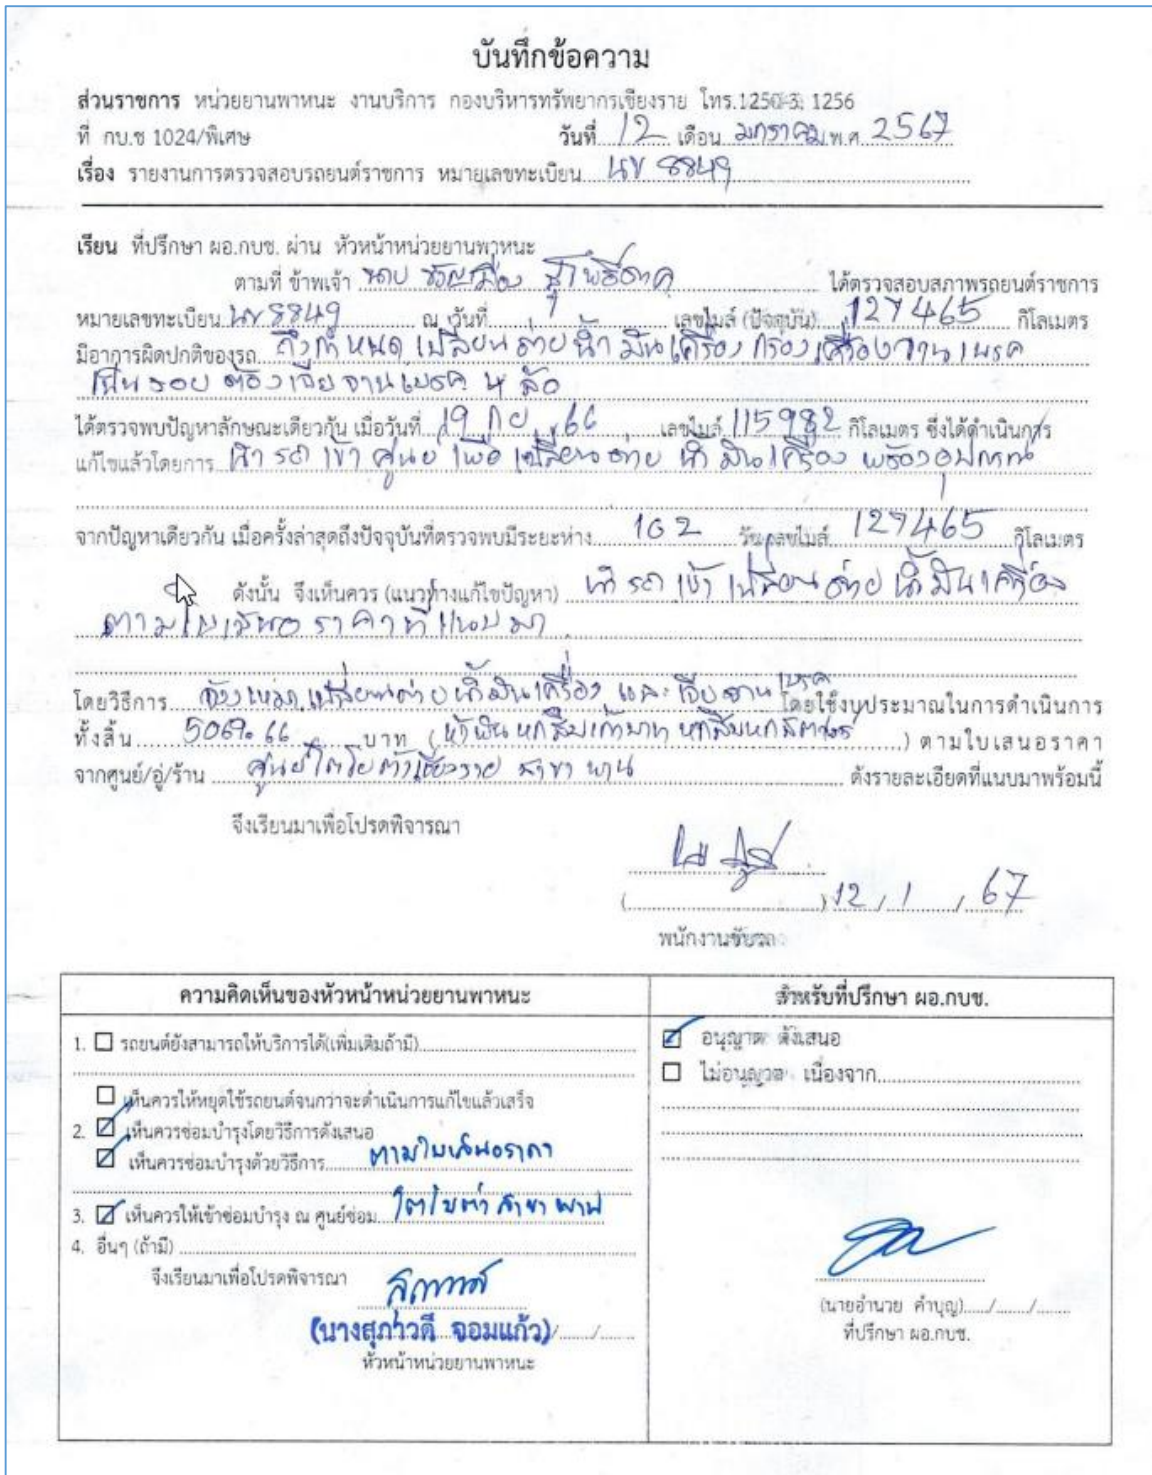 บันทึกข้อความ
ส่วนราชการ หน่วยยานพาหนะ งานบริการ กองบริหารทรัพยากรเชียงราย โทร.1250-3, 1256
ที่ กบ.ช 1024/พิเศษ วันที่ 12 เดือน มกราคม พ.ศ. 2567
เรื่อง รายงานการตรวจสอบรถยนต์ราชการ หมายเลขทะเบียน นข 8849
เรียน ที่ปรึกษา ผอ.กบช. ผ่าน หัวหน้าหน่วยยานพาหนะ
ตามที่ ข้าพเจ้า นาย ได้ตรวจสอบสภาพรถยนต์ราชการ
หมายเลขทะเบียน นข 8849 ณ วันที่ เลขไมล์ (ปัจจุบัน) 127465 กิโลเมตร
มีอาการผิดปกติของรถ ถึงกำหนด เปลี่ยนถ่าย น้ำมันเครื่อง กรองเครื่อง จานเบรค
เป็นรอย ต้องเจียจานเบรค 4 ล้อ
ได้ตรวจพบปัญหาลักษณะเดียวกัน เมื่อวันที่ 19 กย. 66 เลขไมล์ 115982 กิโลเมตร ซึ่งได้ดำเนินการ
แก้ไขแล้วโดยการ นำรถเข้าศูนย์ เพื่อ เปลี่ยนถ่าย น้ำมันเครื่อง พร้อมอุปกรณ์
จากปัญหาเดียวกัน เมื่อครั้งล่าสุดถึงปัจจุบันที่ตรวจพบมีระยะห่าง 102 วัน เลขไมล์ 127465 กิโลเมตร
ดังนั้น จึงเห็นควร (แนวทางแก้ไขปัญหา) นำรถเข้า เปลี่ยนถ่าย น้ำมันเครื่อง
ตามใบเสนอราคาที่แนบมา
โดยวิธีการ เปลี่ยนถ่ายน้ำมันเครื่อง และ เจียจานเบรค โดยใช้งบประมาณในการดำเนินการ
ทั้งสิ้น 5069.66 บาท (ห้าพันหกสิบเก้าบาท หกสิบหกสตางค์) ตามใบเสนอราคา
จากศูนย์/อู่/ร้าน ศูนย์โตโยต้าเชียงราย สาขา พาน ดังรายละเอียดที่แนบมาพร้อมนี้
จึงเรียนมาเพื่อโปรดพิจารณา
( ) 12 / 1 / 67
พนักงานขับรถ
ความคิดเห็นของหัวหน้าหน่วยยานพาหนะ
1. รถยนต์ยังสามารถให้บริการได้(เพิ่มเติมถ้ามี)
เห็นควรให้หยุดใช้รถยนต์จนกว่าจะดำเนินการแก้ไขแล้วเสร็จ
2. เห็นควรซ่อมบำรุงโดยวิธีการดังเสนอ
เห็นควรซ่อมบำรุงด้วยวิธีการ ตามใบเสนอราคา
3. เห็นควรให้เข้าซ่อมบำรุง ณ ศูนย์ซ่อม โตโยต้า สาขา พาน
4. อื่นๆ (ถ้ามี)
จึงเรียนมาเพื่อโปรดพิจารณา
สุภาวดี
(นางสุภาวดี จอมแก้ว) / /
หัวหน้าหน่วยยานพาหนะ
สำหรับที่ปรึกษา ผอ.กบช.
อนุญาต ดังเสนอ
ไม่อนุญาต เนื่องจาก
(นายอำนวย คำบุญ) / /
ที่ปรึกษา ผอ.กบช.